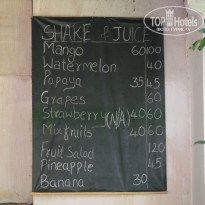 TOP Hotels
SHAKE & JUICE
Mango 60 100
Watermelon 40
Papaya 35 45
Grapes 60
Strawberry (N/A) 40 60
Mix fruits 40 60
Fruit Salad 120
Pineapple 45
Banana 30